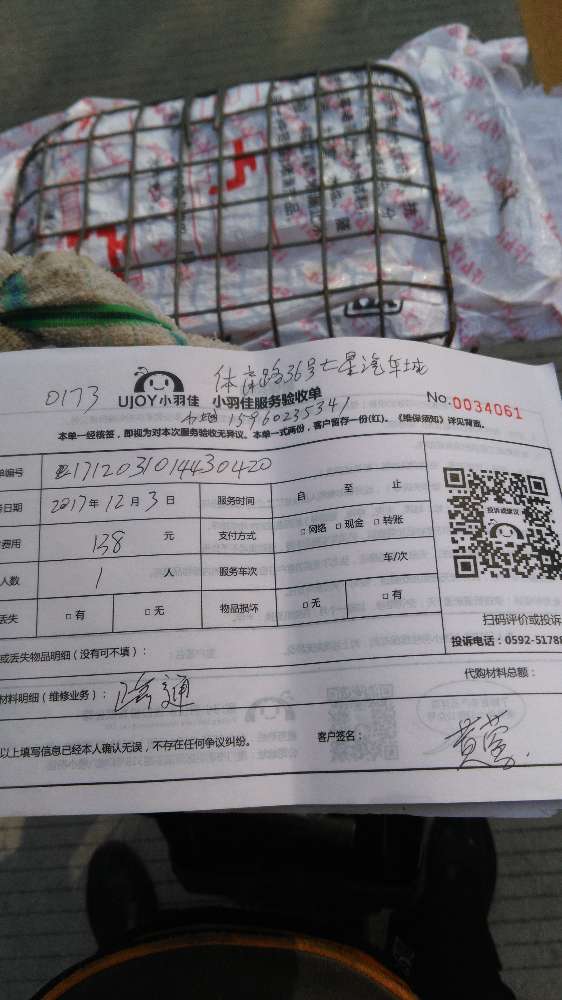 体育路36号七星汽车城
0173
UJOY小羽佳 小羽佳服务验收单
No.0034061
15960235341
本单一经核签,即视为对本次服务验收无异议。本单一式两份,客户留存一份(红)。《维保须知》详见背面。
单编号 1712031014430420
务日期 2017年12月3日 服务时间 自 至 止
费用 138 元 支付方式 □网络 □现金 □转账
人数 1 人 服务车次 车/次
丢失 □有 □无 物品损坏 □无 □有
投诉或建议
扫码评价或投诉
投诉电话:0592-51788
或丢失物品明细(没有可不填):
代购材料总额:
材料明细(维修业务): 疏通
以上填写信息已经本人确认无误,不存在任何争议纠纷。 客户签名: 黄莹